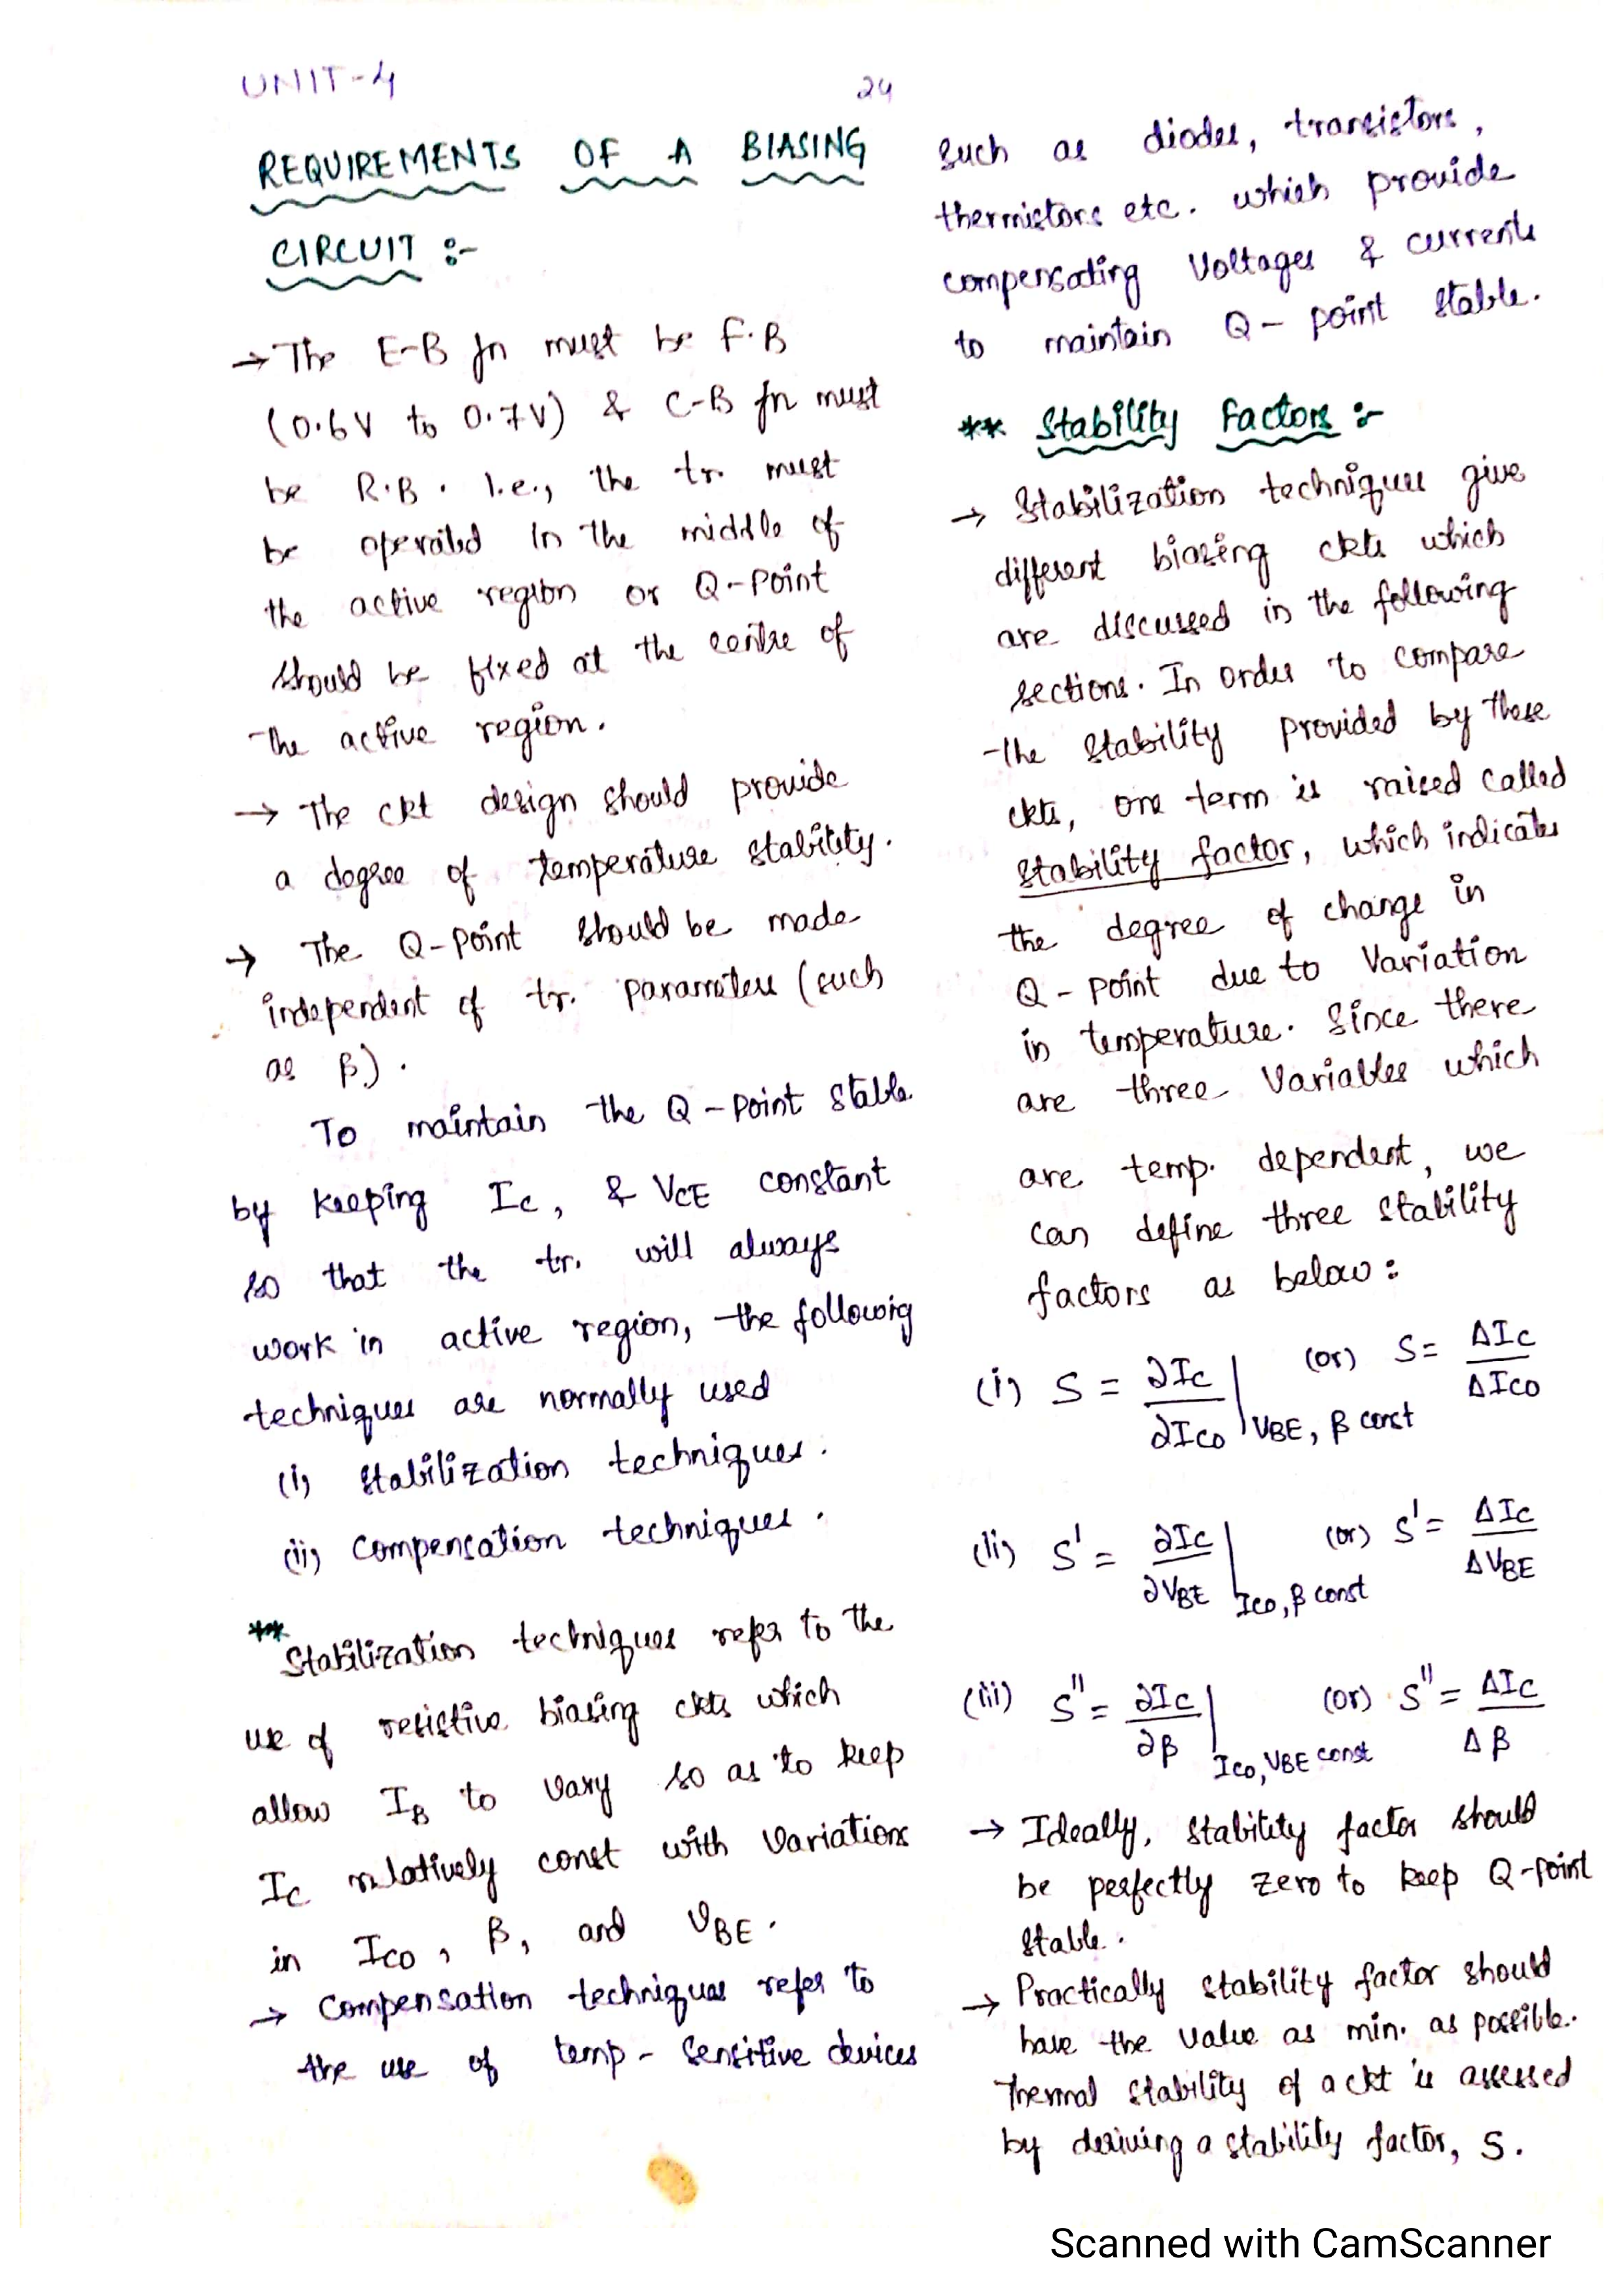 UNIT-4
24
REQUIREMENTS OF A BIASING
CIRCUIT :-
→ The E-B Jn must be F.B
(0.6V to 0.7V) & C-B Jn must
be R.B. I.e., the tr. must
be operated in the middle of
the active region or Q-Point
should be fixed at the centre of
the active region.
→ The ckt design should provide
a degree of temperature stability.
→ The Q-Point should be made
independent of tr. parameters (such
as β).
To maintain the Q-Point stable
by keeping Ic, & VCE constant
so that the tr. will always
work in active region, the followig
techniques are normally used
(i) Stabilization techniques.
(ii) Compensation techniques.
** Stabilization techniques refer to the
use of resistive biasing ckts which
allow IB to vary so as to keep
Ic relatively const with variations
in Ico, β, and VBE.
→ Compensation techniques refer to
the use of temp- sensitive devices
such as diodes, transistors,
thermistors etc. which provide
compensating Voltages & currents
to maintain Q- point stable.
** Stability Factors :-
→ Stabilization techniques give
different biasing ckts which
are discussed in the following
sections. In order to compare
the stability provided by these
ckts, one term is raised called
stability factor, which indicates
the degree of change in
Q-point due to Variation
in temperature. Since there
are three Variables which
are temp. dependent, we
can define three stability
factors as below:
(i) S = ∂Ic/∂Ico | VBE, β const (or) S = ΔIc/ΔIco
(ii) S' = ∂Ic/∂VBE | Ico, β const (or) S' = ΔIc/ΔVBE
(iii) S'' = ∂Ic/∂β | Ico, VBE const (or) S'' = ΔIc/Δβ
→ Ideally, stability factor should
be perfectly zero to keep Q-point
stable.
→ Practically stability factor should
have the value as min. as possible.
Thermal stability of a ckt is assessed
by deriving a stability factor, S.
Scanned with CamScanner